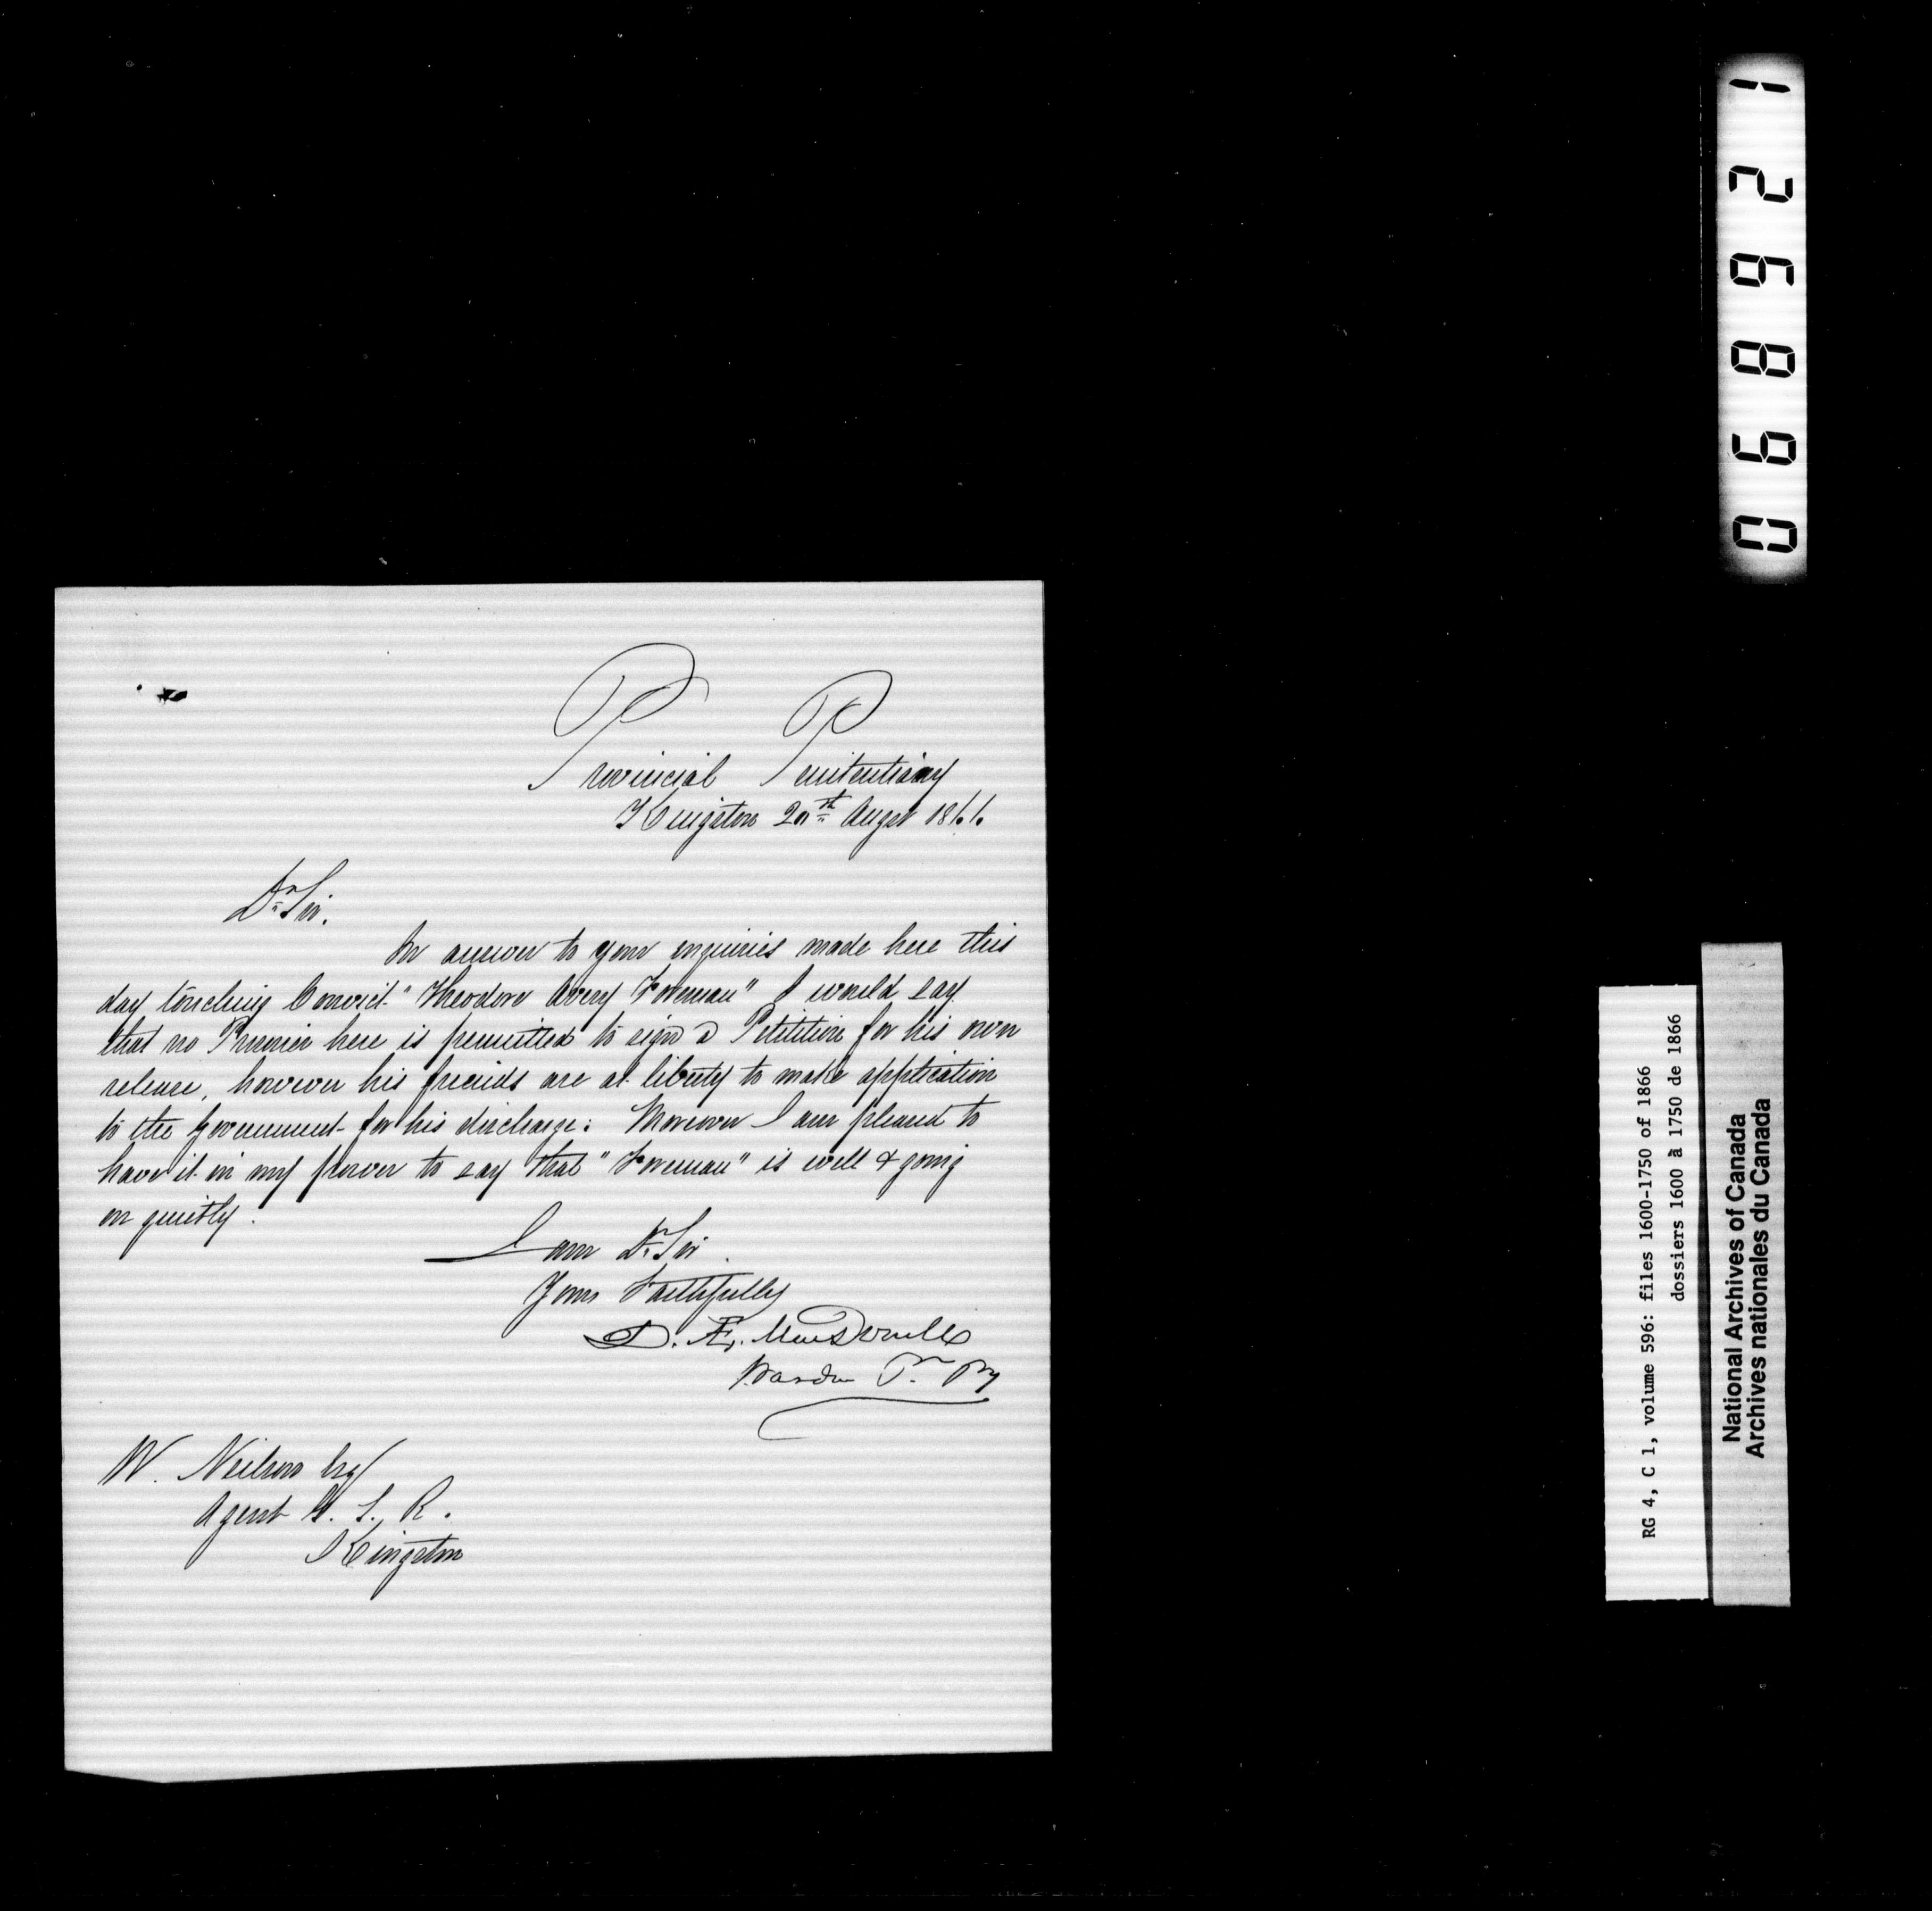 Provincial Penitentiary
Kingston 20th Augst 1866.
Dr Sir.
In answer to your enquiries made here this
day touching Convict "Theodore Avery Foreman" I would say
that no Prisoner here is permitted to sign a Petition for his own
release, however his friends are at liberty to make application
to the Government for his discharge: Moreover I am pleased to
have it in my power to say that "Foreman" is well & going
on quietly.
I am Dr Sir
Yours Faithfully
D. Æ. MacDonell
Warden P. Py
W. Neilson Esq
Agent G. T. R.
Kingston
069821
RG 4, C 1, volume 596: files 1600-1750 of 1866
dossiers 1600 à 1750 de 1866
National Archives of Canada
Archives nationales du Canada